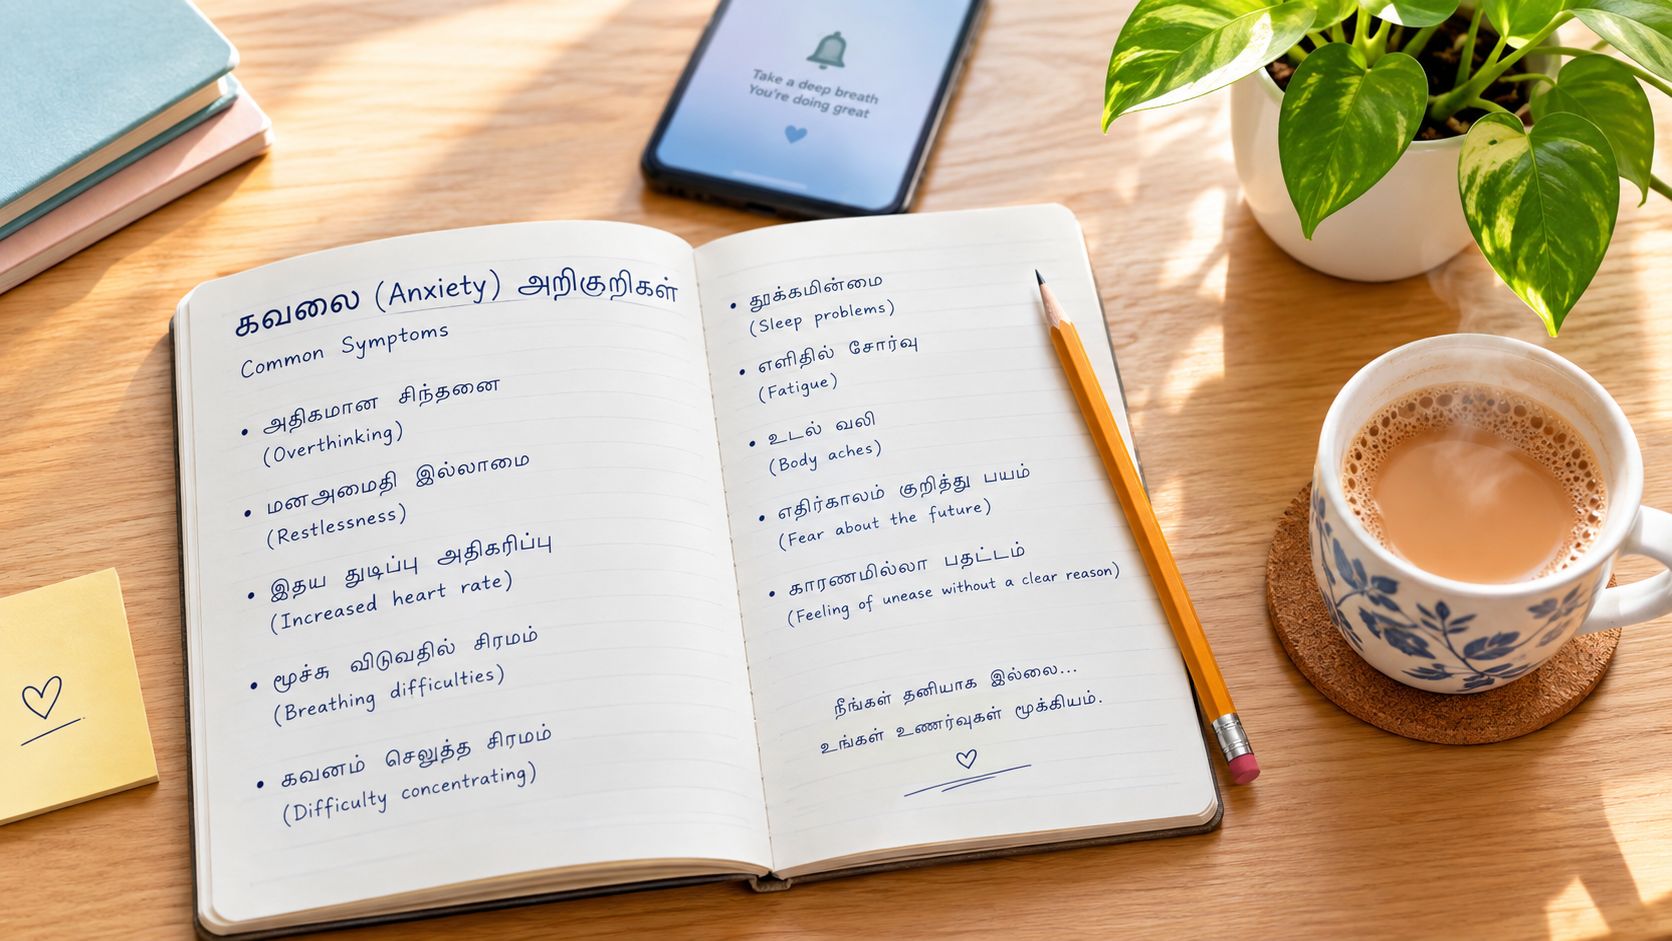 Take a deep breath
You're doing great
கவலை (Anxiety) அறிகுறிகள்
Common Symptoms
• அதிகமான சிந்தனை
(Overthinking)
• மனஅமைதி இல்லாமை
(Restlessness)
• இதய துடிப்பு அதிகரிப்பு
(Increased heart rate)
• மூச்சு விடுவதில் சிரமம்
(Breathing difficulties)
• கவனம் செலுத்த சிரமம்
(Difficulty concentrating)
• தூக்கமின்மை
(Sleep problems)
• எளிதில் சோர்வு
(Fatigue)
• உடல் வலி
(Body aches)
• எதிர்காலம் குறித்து பயம்
(Fear about the future)
• காரணமில்லா பதட்டம்
(Feeling of unease without a clear reason)
நீங்கள் தனியாக இல்லை...
உங்கள் உணர்வுகள் முக்கியம்.